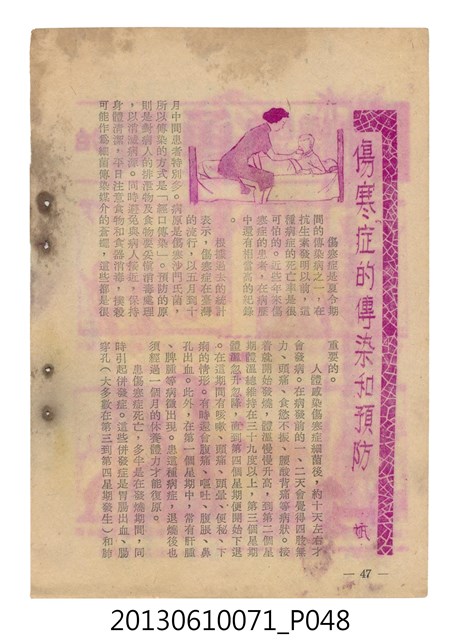 傷寒症的傳染和預防
娥
傷寒症是夏令期
間的傳染病之一，在
抗生素發明以前，這
種病症的死亡率是很
可怕的。近些年來傷
寒症的患者，在病歷
中還有相當高的紀錄
。
根據過去的統計
表示，傷寒症在臺灣
的流行，以五月到十
月中間患者特別多。病原是傷寒沙門氏菌，
所以傳染的方式是「經口傳染」。預防的原
則是對病人的排泄物及食物要妥當消毒處理
，以消滅病源。同時避免與病人接近，保持
身體清潔，平日注意食物和食器消毒，撲殺
可能作為細菌傳染媒介的蒼蠅，這些都是很
重要的。
人體感染傷寒症細菌後，約十天左右才
會發病。在病發前的一、二天會覺得四肢無
力、頭痛、食慾不振、腰酸背痛等病狀。接
著就開始發燒，體溫慢慢升高，到第二個星
期體溫總維持在三十九度以上，第三個星期
體溫忽升忽降，直到第四個星期便開始下退
。在這期間有咳嗽、頭痛、頭暈、便秘、下
痢的情形。有時還會腹痛、嘔吐、腹脹、鼻
孔出血。此外，在第一個星期中，常有肝腫
、脾腫等病徵出現。患這種病症，退燒後也
須經過一個月的休養體力才能復原。
患傷寒症死亡，多半是在發燒期間，同
時引起併發症。這些併發症是胃腸出血、腸
穿孔（大多數在第三到第四星期發生）和肺
— 47 —
20130610071_P048